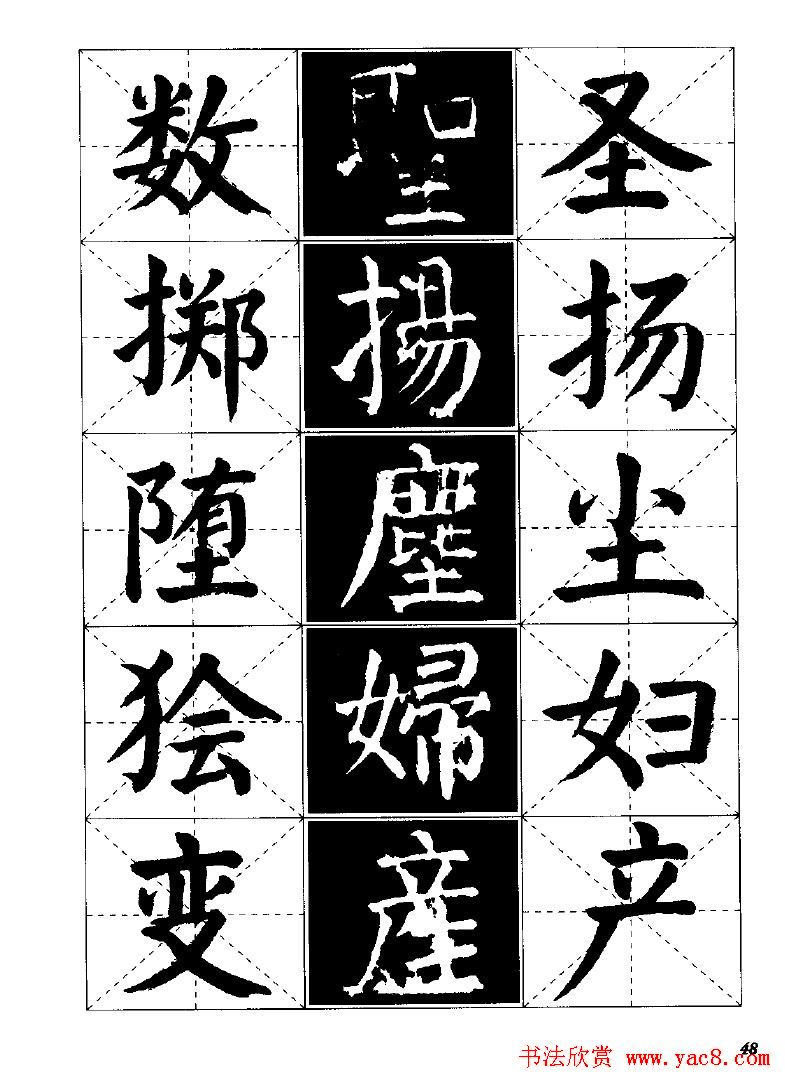 数 聖 圣
掷 揚 扬
堕 塵 尘
狯 婦 妇
变 産 产
48
书法欣赏 www.yac8.com